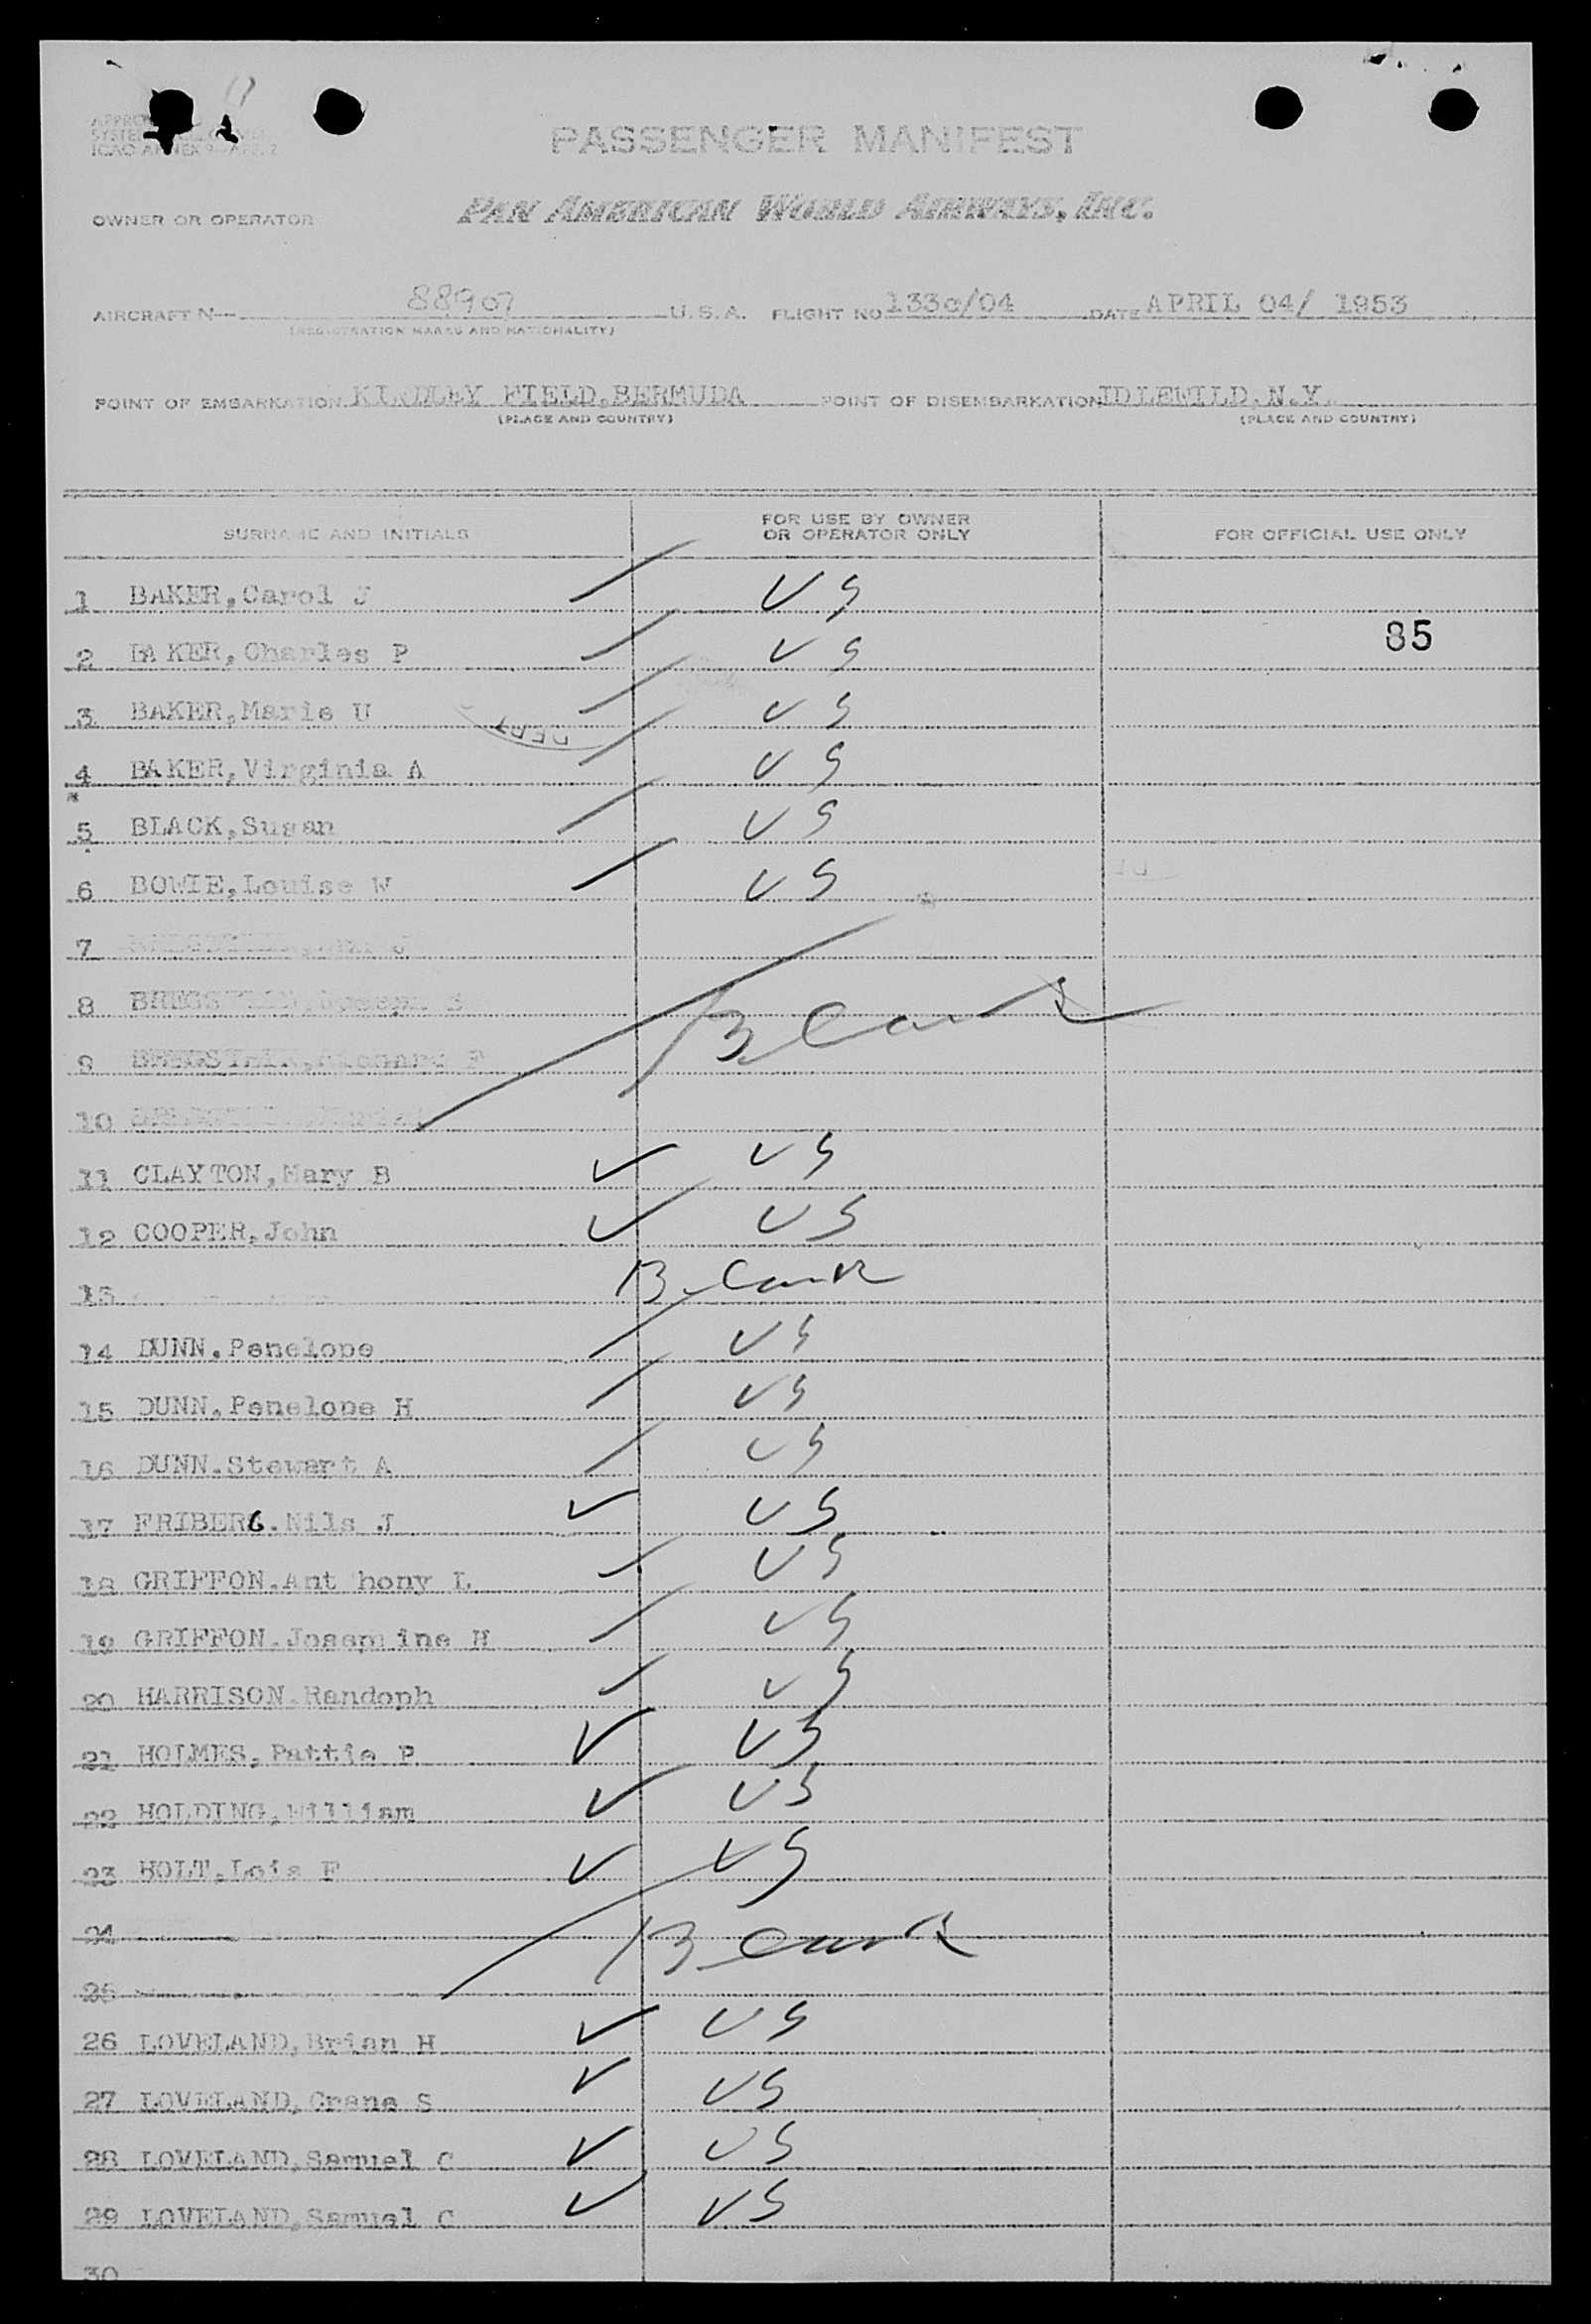 PASSENGER MANIFEST
OWNER OR OPERATOR PAN AMERICAN WORLD AIRWAYS, INC.
AIRCRAFT N— 88907 U.S.A. FLIGHT NO 133c/04 DATE APRIL 04/ 1953
(REGISTRATION MARKS AND NATIONALITY)
POINT OF EMBARKATION KINDLEY FIELD, BERMUDA POINT OF DISEMBARKATION IDLEWILD, N.Y.
(PLACE AND COUNTRY) (PLACE AND COUNTRY)
SURNAME AND INITIALS FOR USE BY OWNER OR OPERATOR ONLY FOR OFFICIAL USE ONLY
1 BAKER, Carol J US
2 BAKER, Charles P US 85
3 BAKER, Marie U US
4 BAKER, Virginia A US
5 BLACK, Susan US
6 BOWIE, Louise W US
7
8 Blank
9
10
11 CLAYTON, Mary B US
12 COOPER, John US
13 Blank
14 DUNN. Penelope US
15 DUNN. Penelope H US
16 DUNN. Stewart A US
17 FRIBERG. Nils J US
18 GRIFFON. Ant hony L US
19 GRIFFON. Josephine H US
20 HARRISON. Randoph US
21 HOLMES, Pattie P US
22 HOLDING, William US
23 HOLT, Lois F US
24 Blank
25
26 LOVELAND, Brian H US
27 LOVELAND, Crane S US
28 LOVELAND, Samuel C US
29 LOVELAND, Samuel C US
30